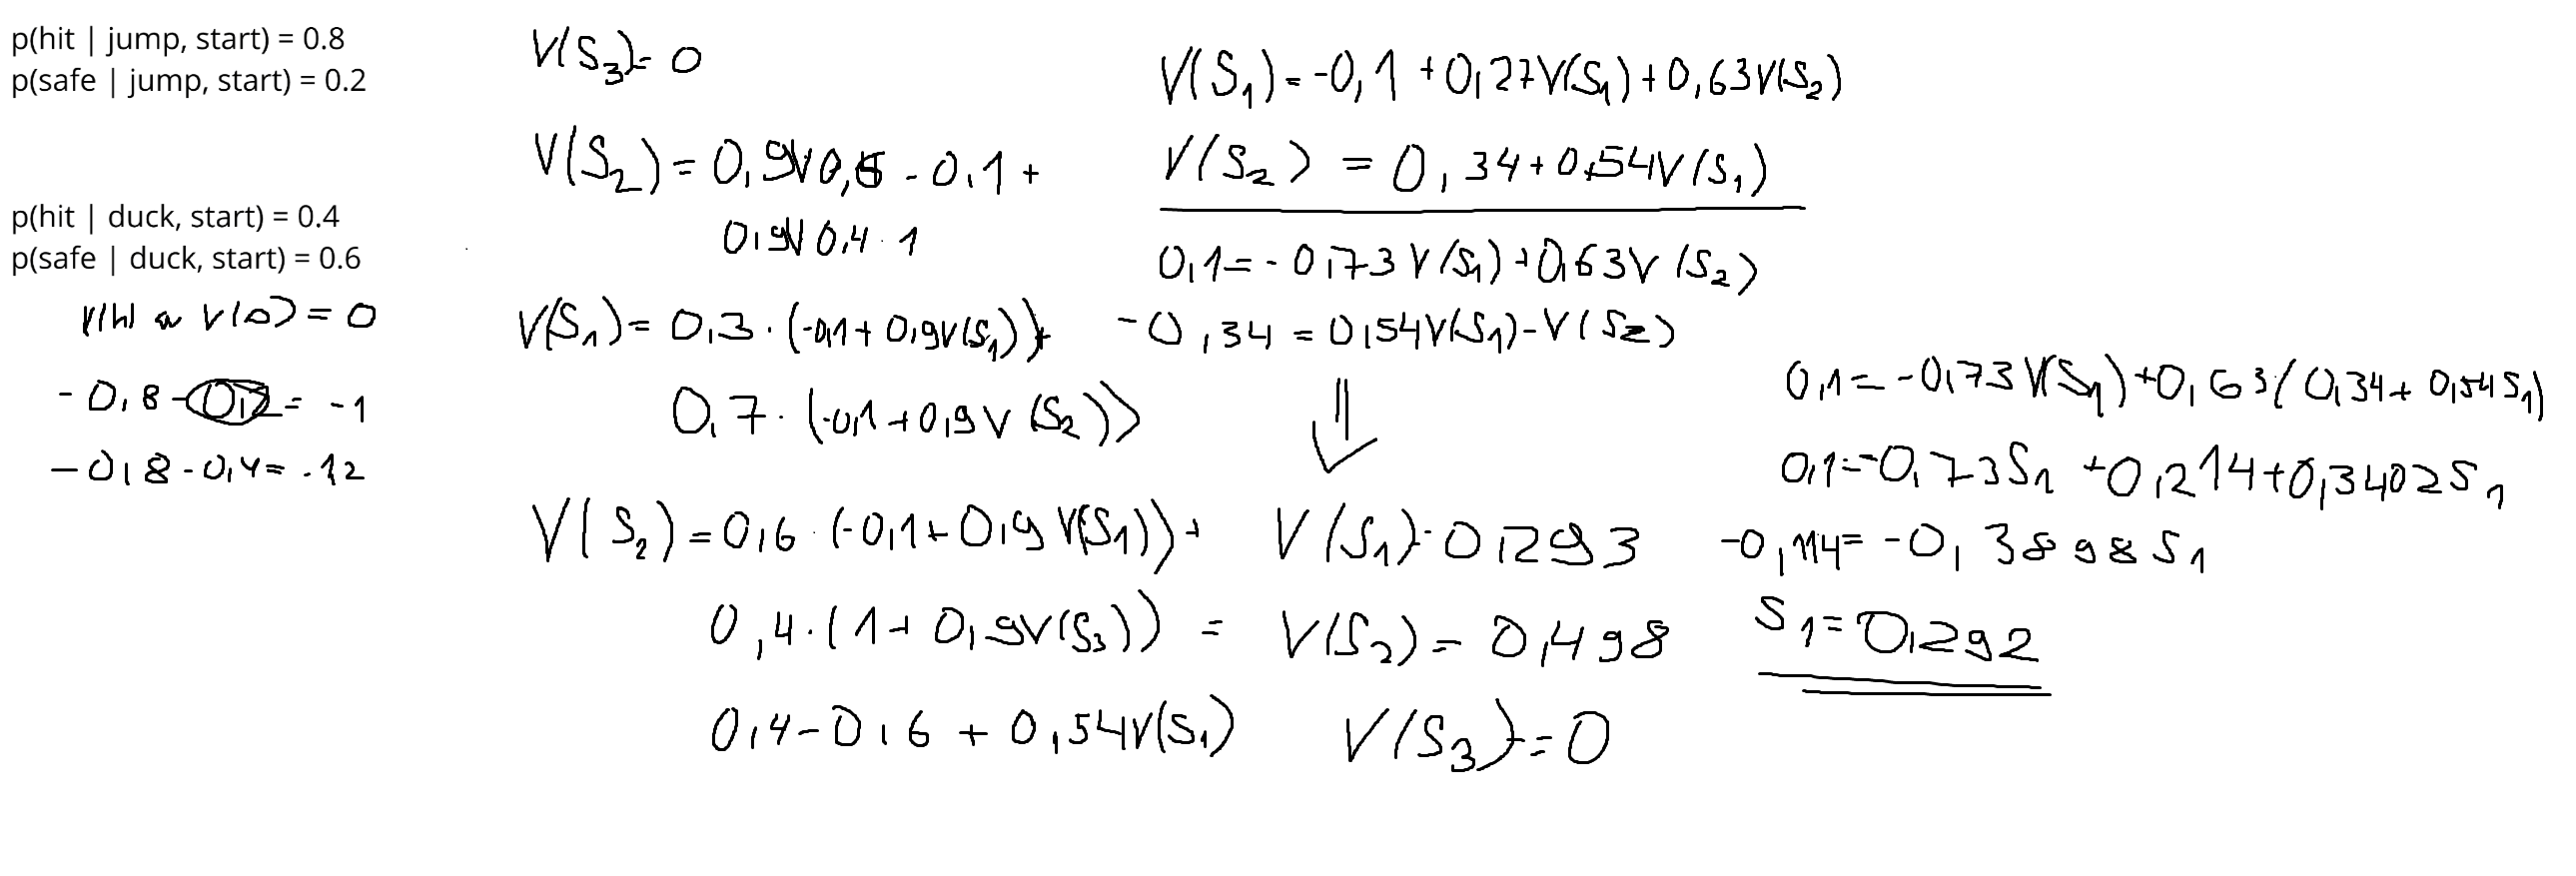 p(hit | jump, start) = 0.8
p(safe | jump, start) = 0.2
p(hit | duck, start) = 0.4
p(safe | duck, start) = 0.6
= 0
-0,8 - = -1
-0,8 - 0,4 = -12
V(S3) = 0
V(S2) = 0,9 - 0.1 +
0,4 · 1
V(S1) = 0,3 · (-0,1 + 0,9V(S1)) +
0,7 · (-0,1 + 0,9V(S2))
V(S2) = 0,6 · (-0,1 + 0,9 V(S1)) +
0,4 · (1 + 0,9V(S3)) =
0,4 - 0,6 + 0,54V(S1)
V(S1) = -0,1 + 0,27V(S1) + 0,63V(S2)
V(S2) = 0,34 + 0,54V(S1)
0,1 = -0,73V(S1) + 0,63V(S2)
-0,34 = 0,54V(S1) - V(S2)
⇓
V(S1) = 0,293
V(S2) = 0,498
V(S3) = 0
0,1 = -0,73V(S1) + 0,63(0,34 + 0,54S1)
0,1 = -0,73S1 + 0,214 + 0,3402S1
-0,114 = -0,3898S1
S1 = 0,292